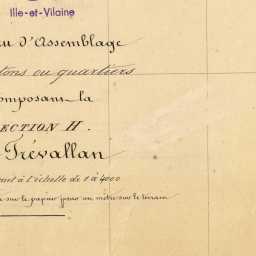 Ille-et-Vilaine
au d'Assemblage
tons ou quartiers
omposans la
ECTION H.
Trévallan
à l'échelle de 1 à
sur le papier pour un mètre sur le terrain